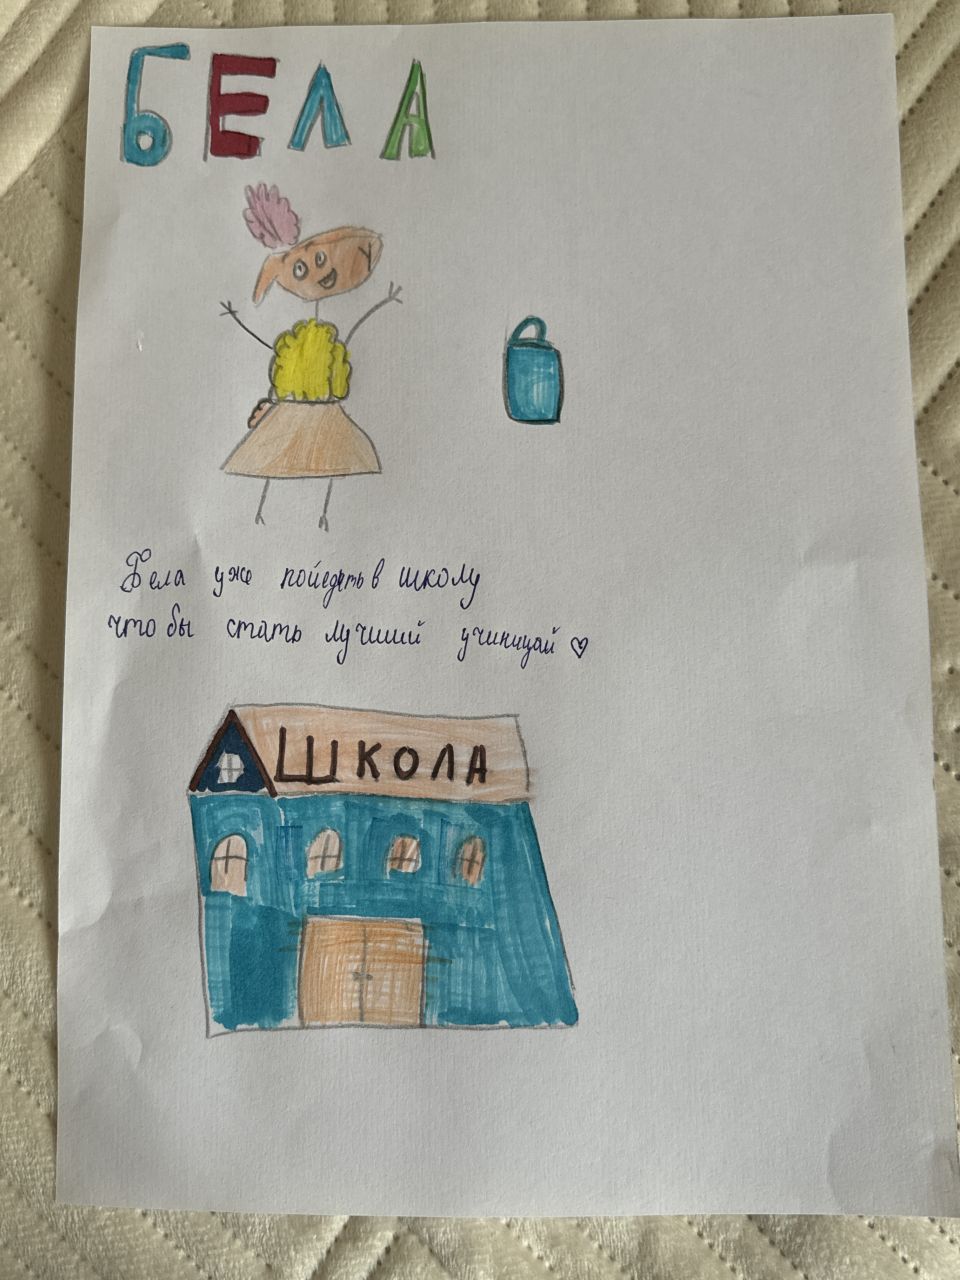 БЕЛА
Бела уже пойедеть в школу
что бы стать лучший учиницай ♡
ШКОЛА